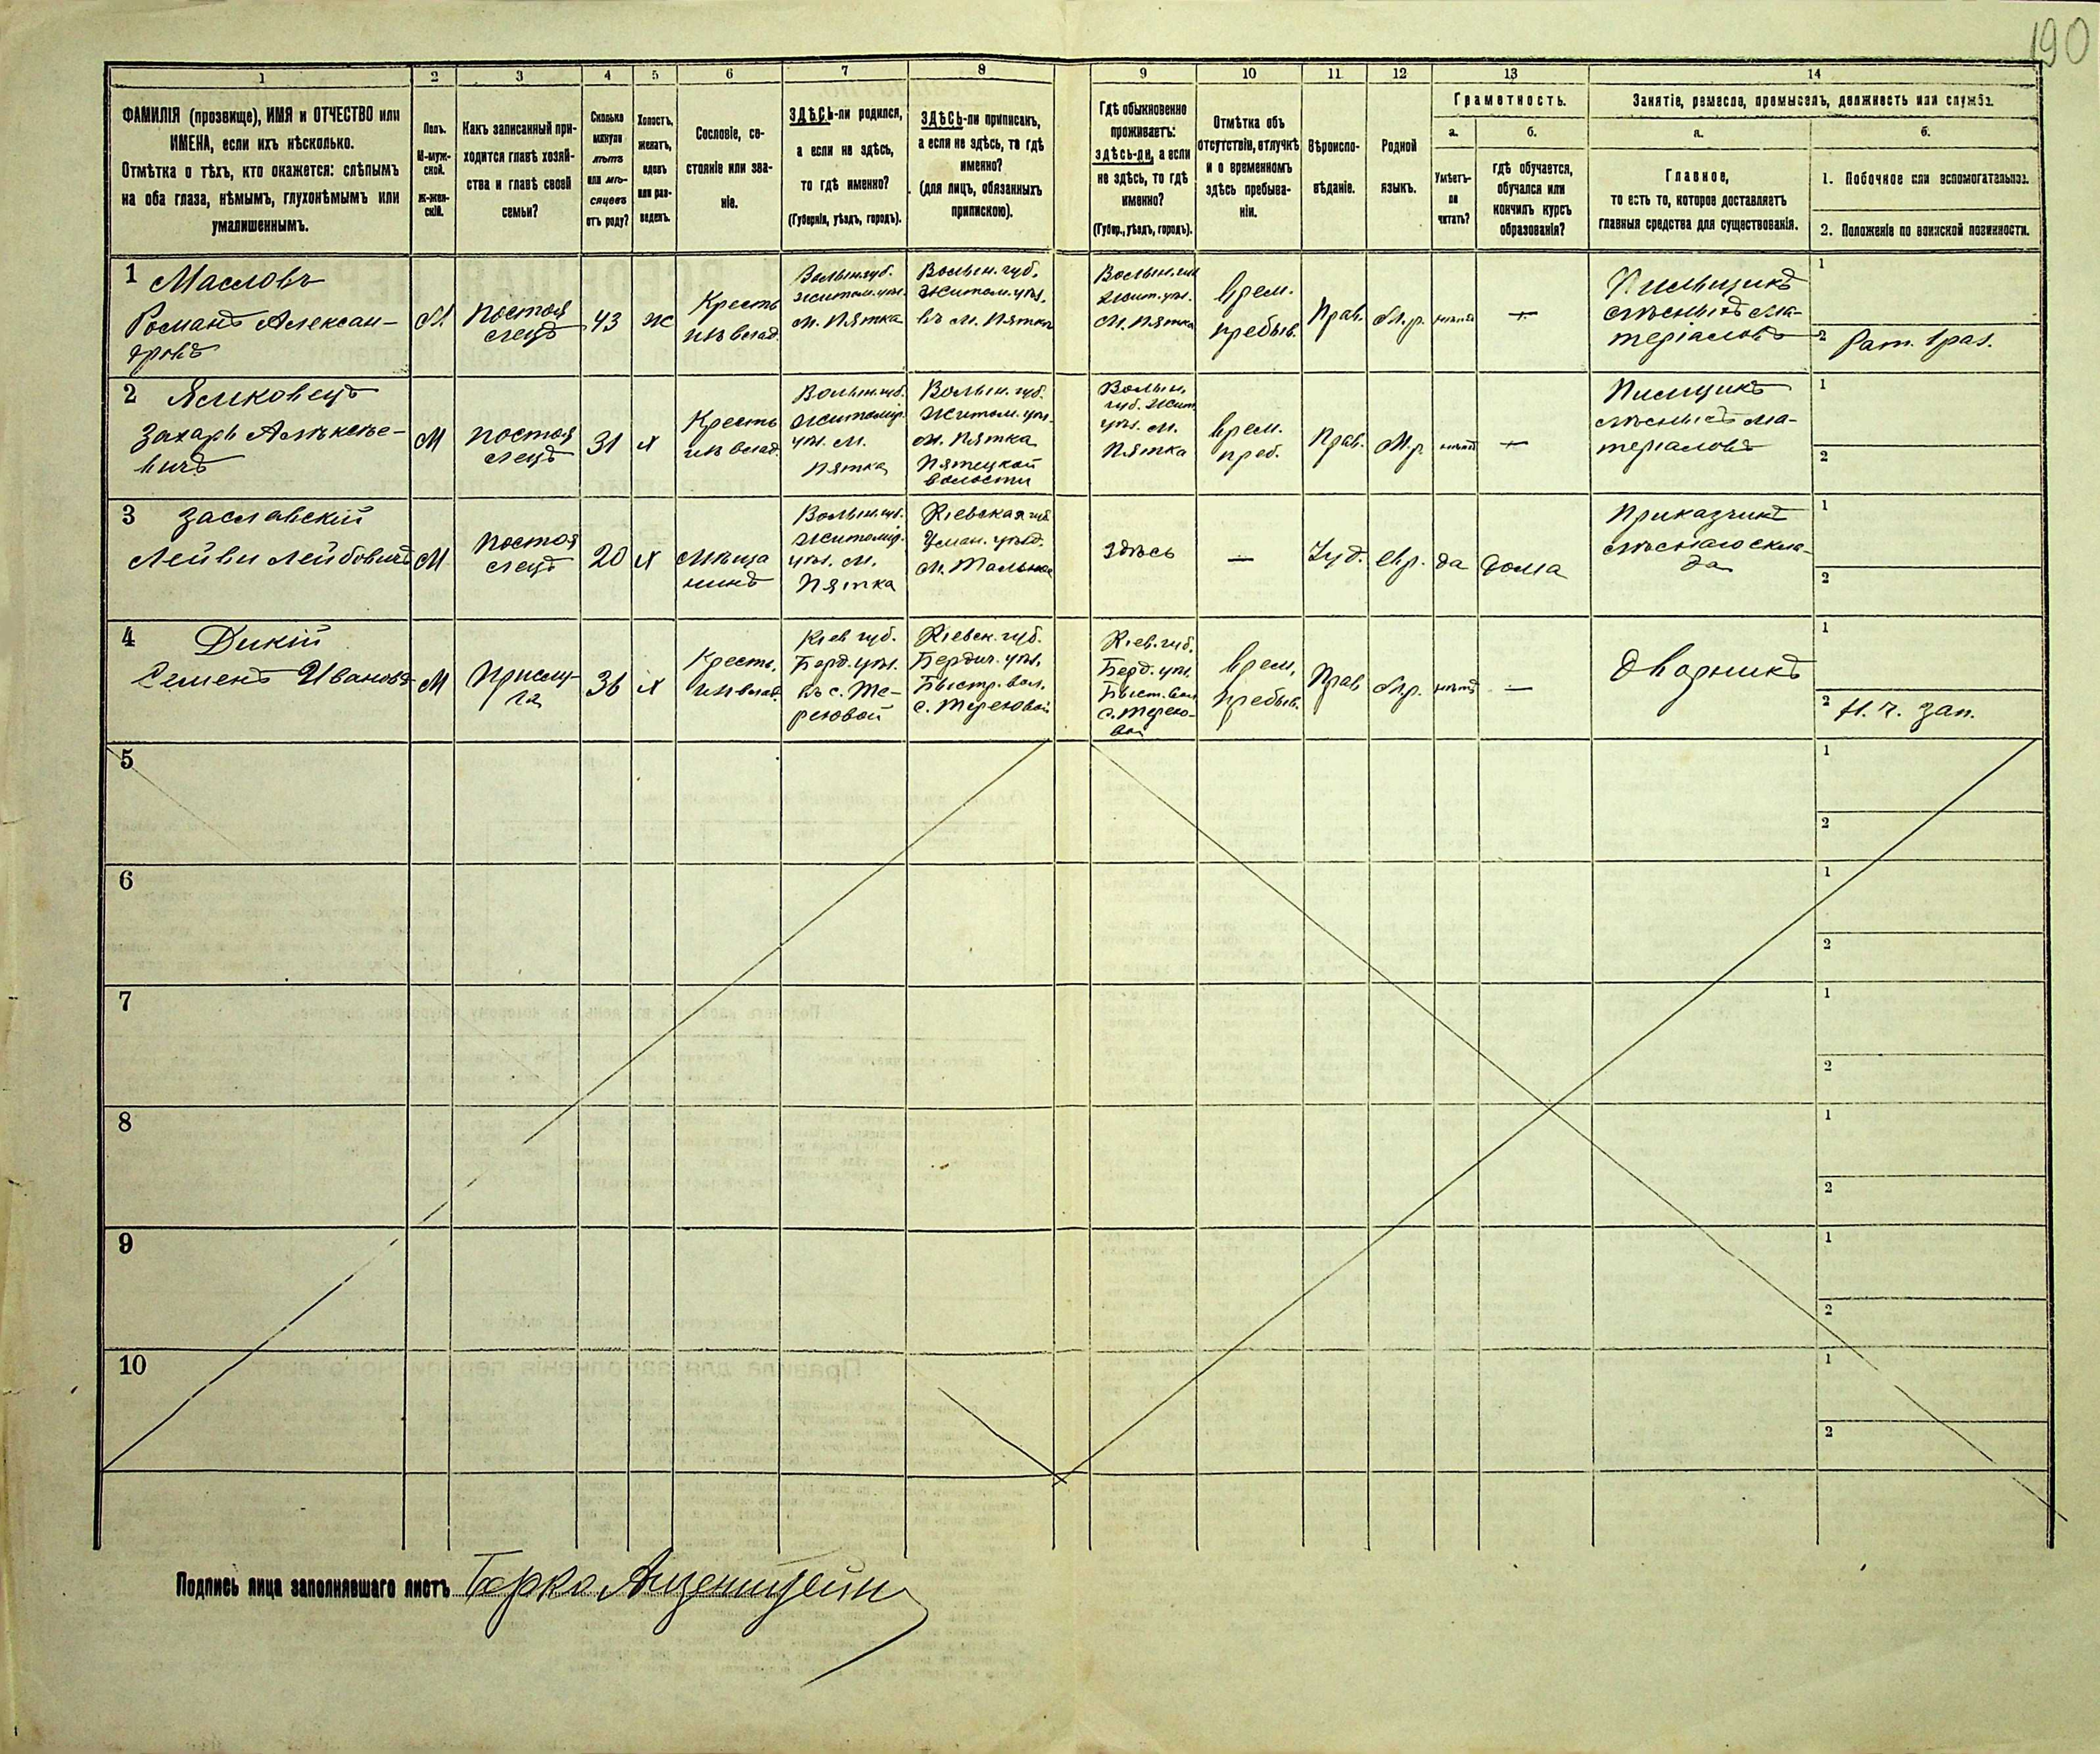 190
1 2 3 4 5 6 7 8 9 10 11 12 13 14
ФАМИЛІЯ (прозвище), ИМЯ и ОТЧЕСТВО или
ИМЕНА, если ихъ нѣсколько.
Отмѣтка о тѣхъ, кто окажется: слѣпымъ
на оба глаза, нѣмымъ, глухонѣмымъ или
умалишеннымъ.
Полъ.
М-муж-
ской.
Ж-жен-
скій.
Какъ записанный при-
ходится главѣ хозяй-
ства и главѣ своей
семьи?
Сколько
минуло
лѣтъ
или мѣ-
сяцевъ
отъ роду?
Холостъ,
женатъ,
вдовъ
или раз-
веденъ.
Сословіе, со-
стояніе или зва-
ніе.
ЗДѢСЬ-ли родился,
а если не здѣсь,
то гдѣ именно?
(Губернія, уѣздъ, городъ).
ЗДѢСЬ-ли приписанъ,
а если не здѣсь, то гдѣ
именно?
(для лицъ, обязанныхъ
припискою).
Гдѣ обыкновенно
проживаетъ:
здѣсь-ли, а если
не здѣсь, то гдѣ
именно?
(Губер., уѣздъ, городъ).
Отмѣтка объ
отсутствіи, отлучкѣ
и о временномъ
здѣсь пребыва-
ніи.
Вѣроиспо-
вѣданіе.
Родной
языкъ.
Грамотность.
а.
Умѣетъ-
ли
читать?
б.
гдѣ обучается,
обучался или
кончилъ курсъ
образованія?
Занятіе, ремесло, промыселъ, должность или служба.
а.
Главное,
то есть то, которое доставляетъ
главныя средства для существованія.
б.
1. Побочное или вспомогательное.
2. Положеніе по воинской повинности.
1 Масловъ
Романъ Алексан-
дровъ
М.
Постоя
лецъ
43
ж
Кресть
изъ влад.
Волын. губ.
Житом. уѣз.
м. Пятка
Волын. губ.
Житом. уѣз.
въ м. Пятка
Волын. губ.
Жит. уѣз.
м. Пятка
врем.
пребыв.
Прав.
М.р.
нѣтъ
—
Пильщикъ
лѣсныхъ ма-
теріаловъ
1
2 Рат. 1 раз.
2
Захарь
М
Постоя
лецъ
31
х
Кресть
изъ влад.
Волын. губ.
Житомір.
уѣз. м.
Пятка
Волын. губ.
Житом. уѣз.
м. Пятка
Пятецкой
волости
Волын.
губ. Жит.
уѣз. м.
Пятка
врем.
преб.
Прав.
М.р.
нѣтъ
—
Пилщикъ
лѣсныхъ ма-
теріаловъ
1
2
3 Заславскій
Лейви Лейбовичъ
М
Постоя
лецъ
20
х
Мѣща
нинъ
Волын. губ.
Житомір.
уѣз. м.
Пятка
Кіевская губ.
Уман. уѣзд.
м. Тальное
здѣсь
—
Іуд.
евр.
да
дома
Приказчикъ
лѣснаго скла-
да
1
2
4 Дикій
Семенъ Ивановъ
М
Прислу-
га
36
х
Кресть.
изъ влад.
Кіев. губ.
Берд. уѣз.
въ с. Те-
реховой
Кіевск. губ.
Бердич. уѣз.
Быстр. вол.
с. Тереховой
Кіев. губ.
Берд. уѣз.
Быст. вол.
с. Терехо-
вой
врем.
пребыв.
Прав
М.р.
нѣтъ
—
Дворникъ
1
2 Н. ч. зап.
5 1
2
6 1
2
7 1
2
8 1
2
9 1
2
10 1
2
Подпись лица заполнявшаго листъ Берко